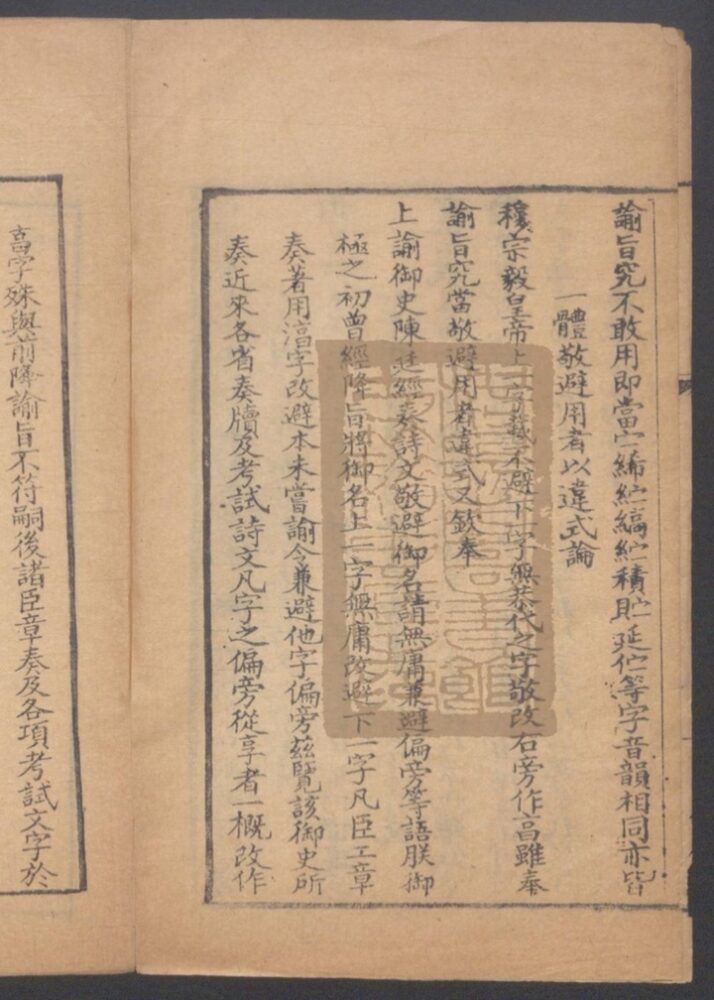 諭旨究不敢用即當㝉綈紵縞紵積貯延佇等字音韻相同亦皆
一體敬避用者以違式論
穆宗毅皇帝上一字敬不避下一字無恭代之字敬改右旁作髙雖奉
諭旨究當敬避用者違式又欽奉
上諭御史陳廷經奏詩文敬避御名請無庸兼避偏旁等語朕御
極之初曾經降旨將御名上一字無庸改避下一字凡臣工章
奏著用湻字改避本未嘗諭令兼避他字偏旁茲覽該御史所
奏近來各省奏牘及考試詩文凡字之偏旁從享者一概改作
髙字殊與前降諭旨不符嗣後諸臣章奏及各項考試文字於